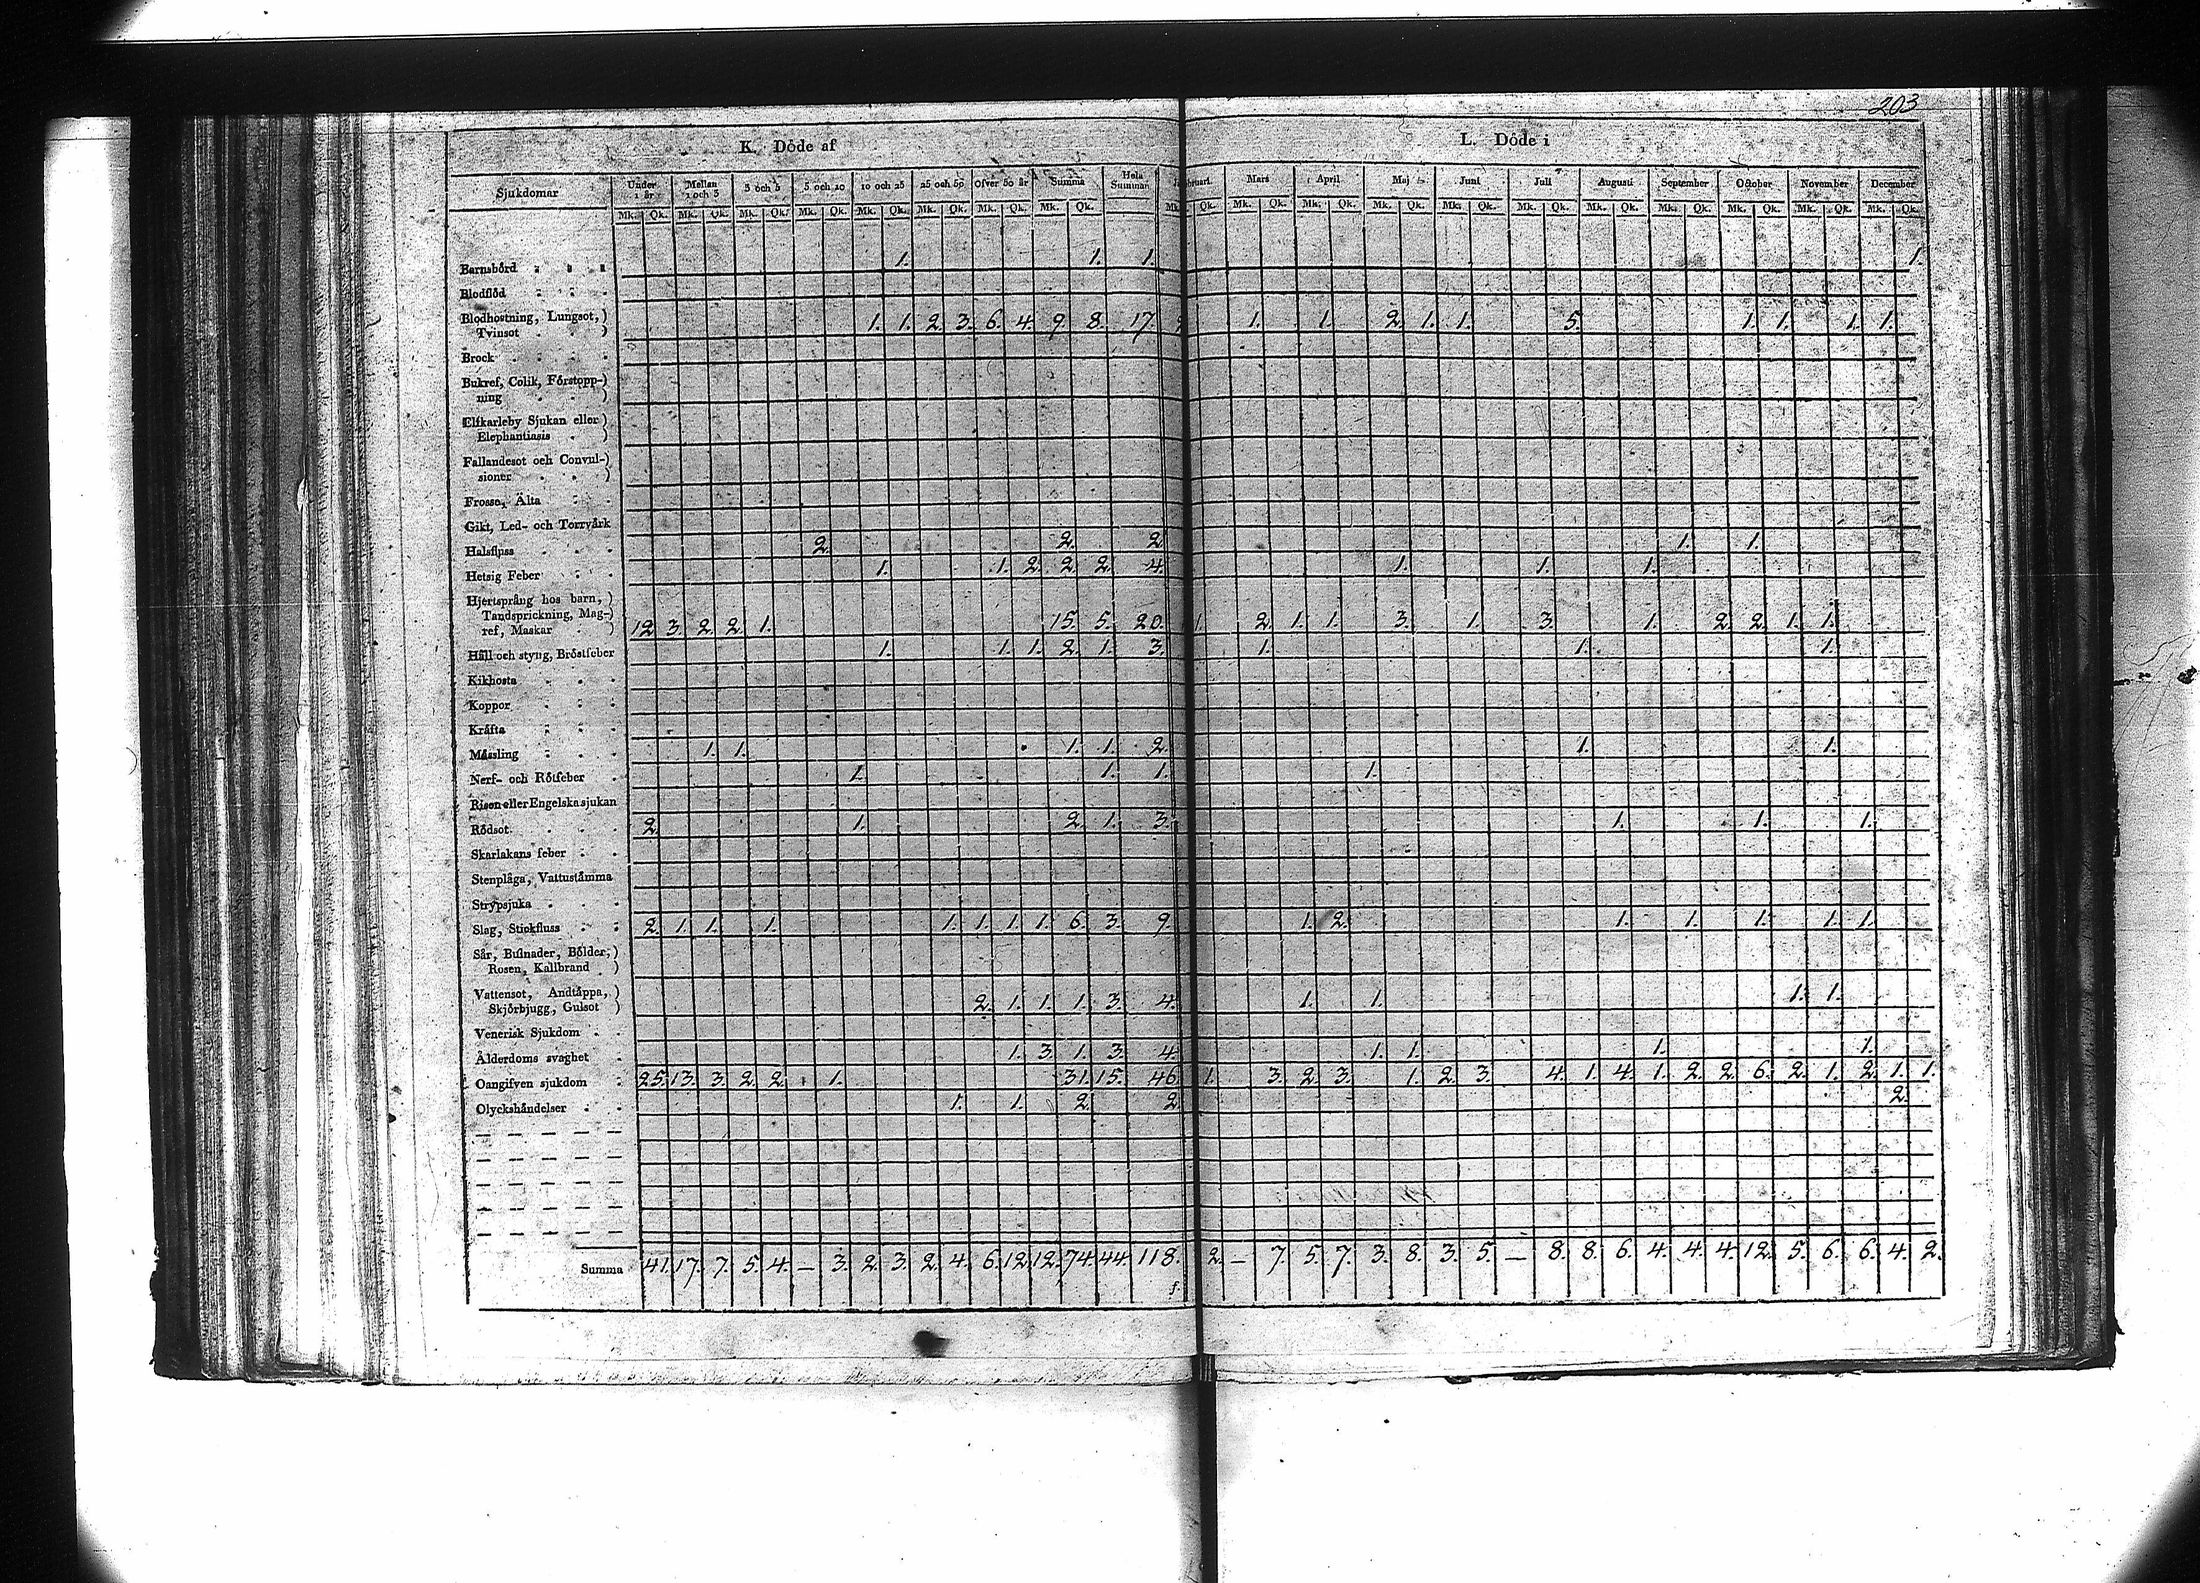 203
K. Döde af
L. Döde i
Sjukdomar Under 1 år Mellan 1 och 3 3 och 5 5 och 10 10 och 25 25 och 50 Öfver 50 år Summa Hela Summan Mars April Maj Juni Juli Augusti September October November December
Mk. Qk. Mk. Qk. Mk. Qk. Mk. Qk. Mk. Qk. Mk. Qk. Mk. Qk. Mk. Qk. Mk. Qk. Mk. Qk. Mk. Qk. Mk. Qk. Mk. Qk. Mk. Qk. Mk. Qk. Mk. Qk. Mk. Qk. Mk. Qk. Mk. Qk.
Barnsbörd 1. 1. 1. 1.
Blodflöd
Blodhostning, Lungsot,)
Tvinsot ) 1. 1. 2. 3. 6. 4. 9. 8. 17. 1. 1. 2. 1. 1. 5. 1. 1. 1. 1.
Brock
Bukref, Colik, Förstopp-)
ning )
Elfkarleby Sjukan eller)
Elephantiasis )
Fallandesot och Convul-)
sioner )
Frossa, Älta
Gikt, Led- och Torrvärk
Halsfluss 2. 2. 2. 1. 1.
Hetsig Feber 1. 1. 2. 2. 2. 4. 1. 1. 1.
Hjertsprång hos barn,)
Tandsprickning, Mag-)
ref, Maskar ) 12. 3. 2. 2. 1. 15. 5. 20. 1. 2. 1. 1. 3. 1. 3. 1. 2. 2. 1. 1.
Håll och styng, Bröstfeber 1. 1. 1. 2. 1. 3. 1. 1. 1.
Kikhosta
Koppor
Kräfta
Mässling 1. 1. 1. 1. 2. 1. 1.
Nerf- och Rötfeber 1. 1. 1. 1.
Risen eller Engelska sjukan
Rödsot 2. 1. 2. 1. 3. 1. 1. 1.
Skarlakans feber
Stenplåga, Vattustämma
Strypsjuka
Slag, Stickfluss 2. 1. 1. 1. 1. 1. 1. 1. 6. 3. 9. 1. 2. 1. 1. 1. 1. 1.
Sår, Bulnader, Bölder,)
Rosen, Kallbrand )
Vattensot, Andtäppa,)
Skjörbjugg, Gulsot ) 2. 1. 1. 1. 3. 4. 1. 1. 1. 1.
Venerisk Sjukdom
Ålderdoms svaghet 1. 3. 1. 3. 4. 1. 1. 1. 1.
Oangifven sjukdom 25. 13. 3. 2. 2. 1. 31. 15. 46. 1. 3. 2. 3. 1. 2. 3. 4. 1. 4. 1. 2. 2. 6. 2. 1. 2. 1. 1.
Olyckshändelser 1. 1. 2. 2. 2.
Summa 41. 17. 7. 5. 4. — 3. 2. 3. 2. 4. 6. 12. 12. 74. 44. 118. 2. — 7. 5. 7. 3. 8. 3. 5. — 8. 8. 6. 4. 4. 4. 12. 5. 6. 6. 4. 2.